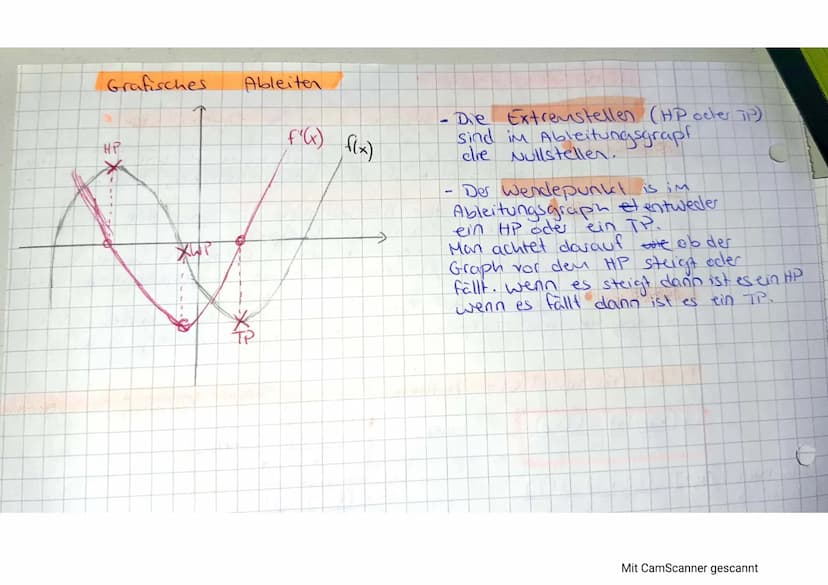 Grafisches Ableiten
HP
f'(x)
f(x)
WP
TP
- Die Extremstellen (HP oder TP)
sind im Ableitungsgrapf
die Nullstellen.
- Der Wendepunkt is im
Ableitungsgraph entweder
ein HP oder ein TP.
Man achtet darauf ob der
Graph vor dem HP steigt oder
fällt. wenn es steigt dann ist es ein HP
wenn es fällt dann ist es ein TP.
Mit CamScanner gescannt